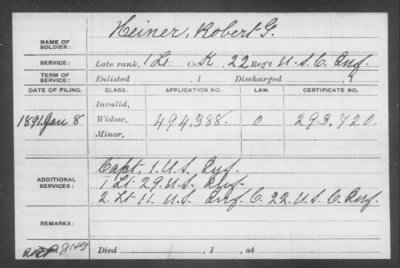 NAME OF SOLDIER: Heiner, Robert G.
SERVICE: Late rank, 1 Lt. Co. K, 22 Reg't U.S.C. Inf.
TERM OF SERVICE: Enlisted , 1 Discharged , 1
DATE OF FILING. CLASS. APPLICATION NO. LAW. CERTIFICATE NO.
Invalid,
1891 Jan 8 Widow, 494,388. 0 293,720.
Minor,
ADDITIONAL SERVICES: Capt. 1. U.S. Inf.
1 Lt. 29. U.S. Inf.
2. Lt 11. U.S. Inf. C. 22. U.S. C. Inf.
REMARKS:
Died , 1 , at